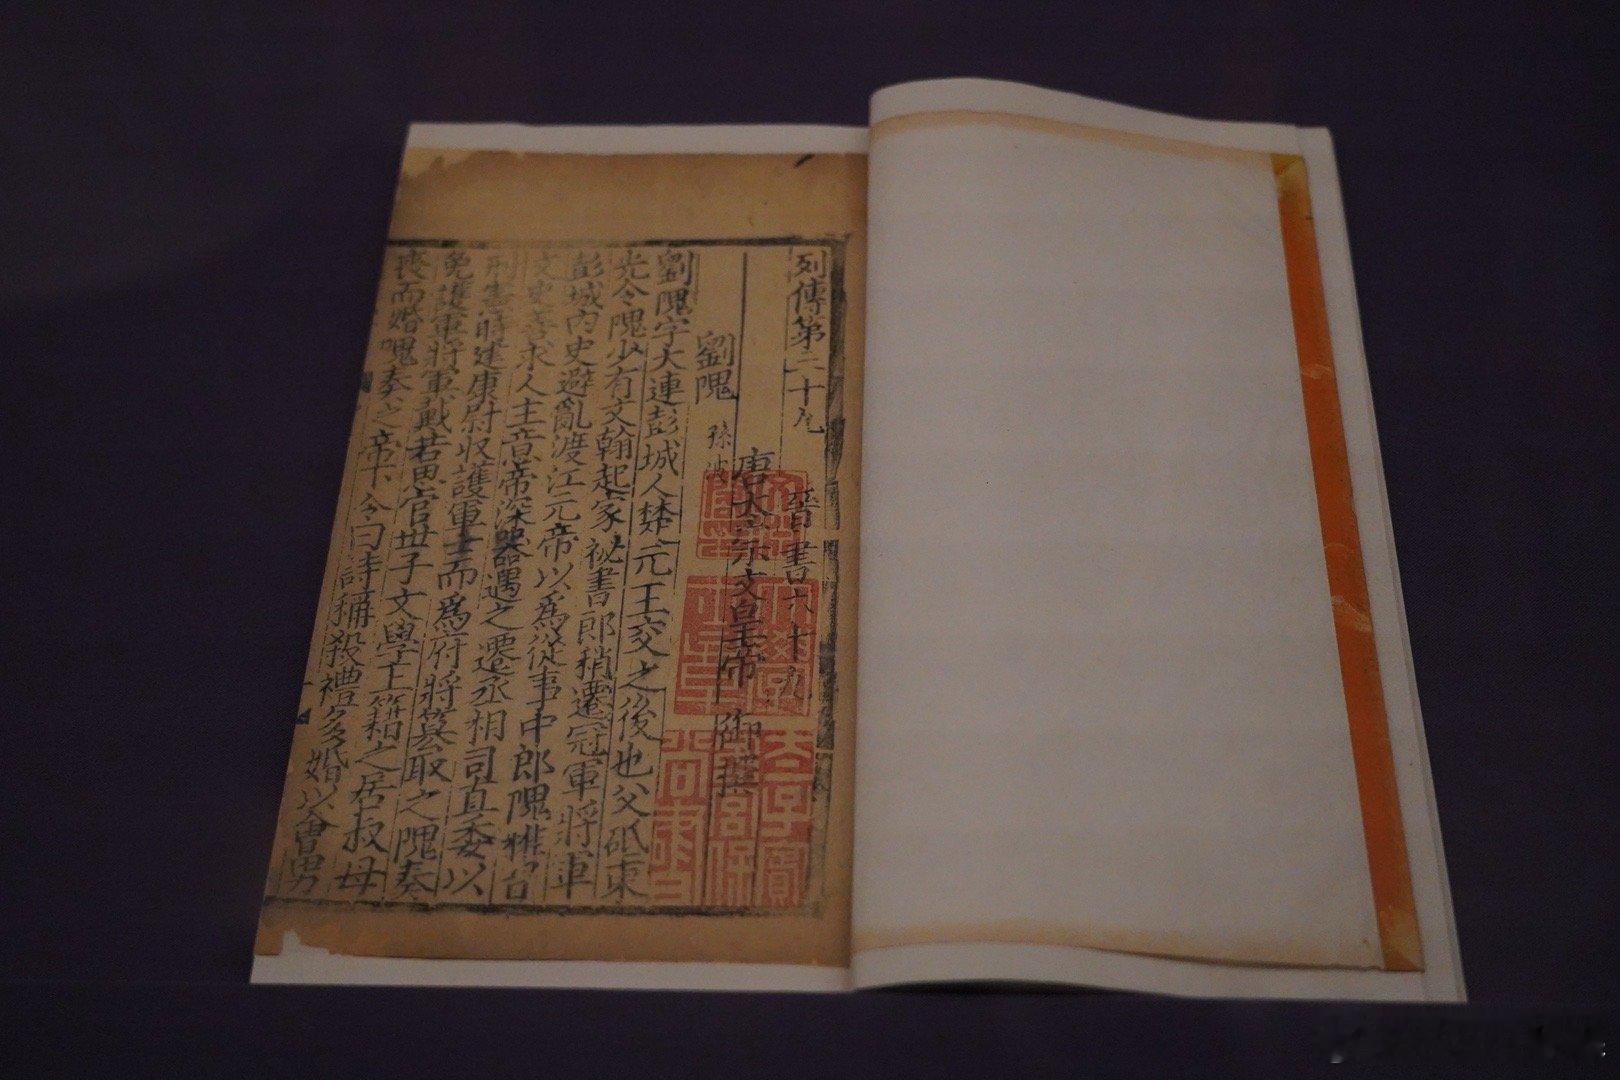 列傳第三十九 晉書六十九
唐太宗文皇帝 御撰
劉隗 孫波
劉隗字大連彭城人楚元王交之後也父砥東
光令隗少有文翰起家祕書郎稍遷冠軍將軍
彭城内史避亂渡江元帝以爲從事中郎隗雅習
文史善求人主意帝深器遇之遷丞相司直委以
刑憲時建康尉收護軍士而爲府將篡取之隗奏
免護軍將軍戴若思官世子文學王籍之居叔母
喪而婚隗奏之帝下令曰詩稱殺禮多婚以會男